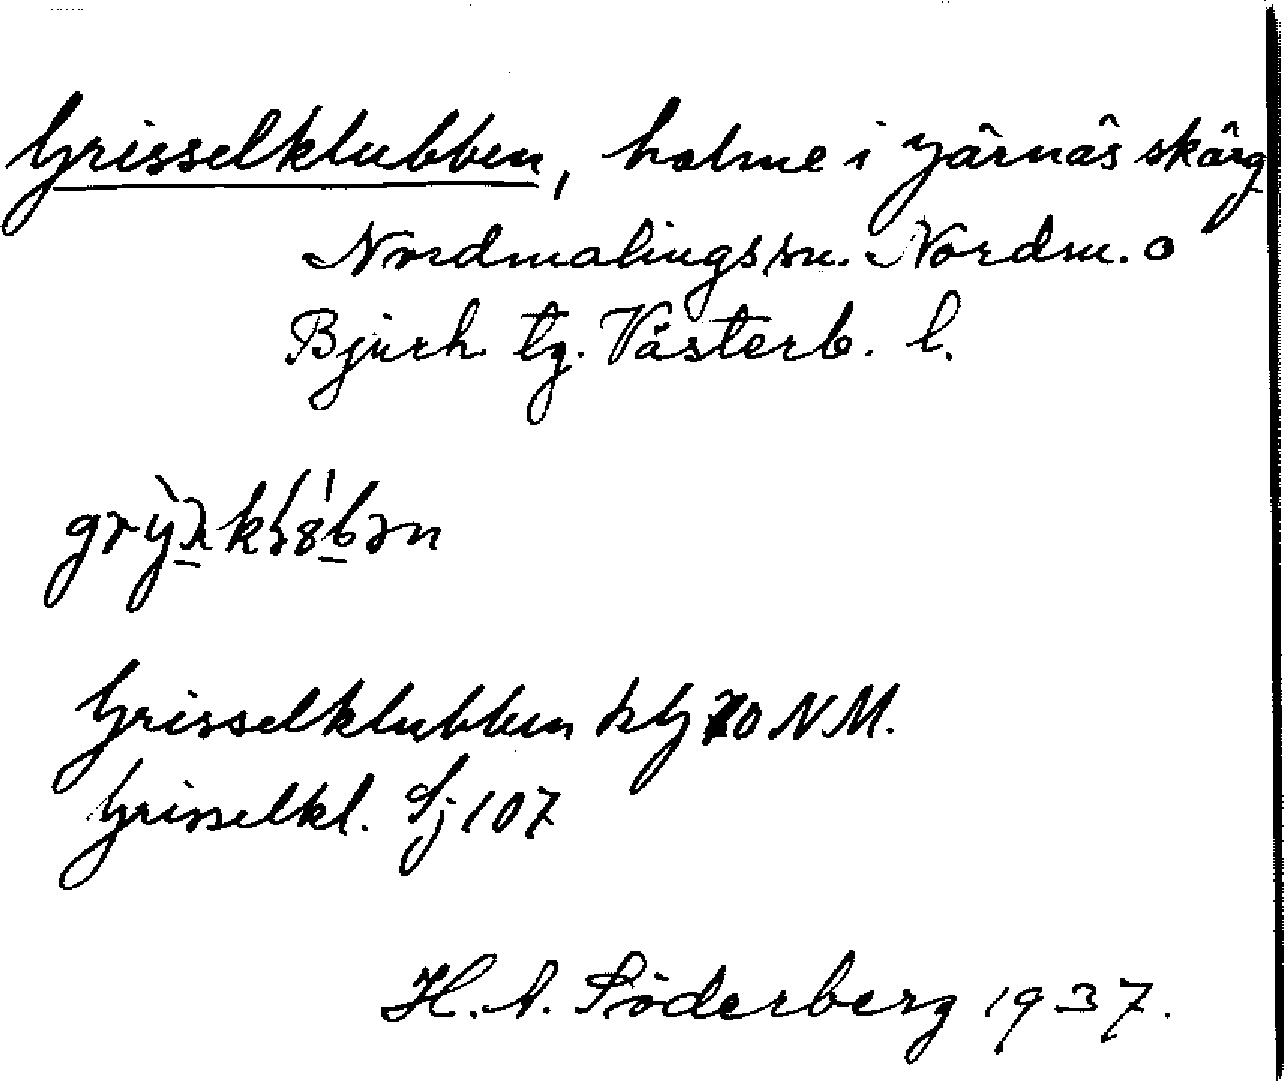 Grisselklubben, holme i Järnäs skärg
Nordmalings sn. Nordm. o
Bjurh. tg. Västerb. l.
Grisselklubben hlg 70 NM.
Grisselkl. Sj 107
H. A. Söderberg 1937.